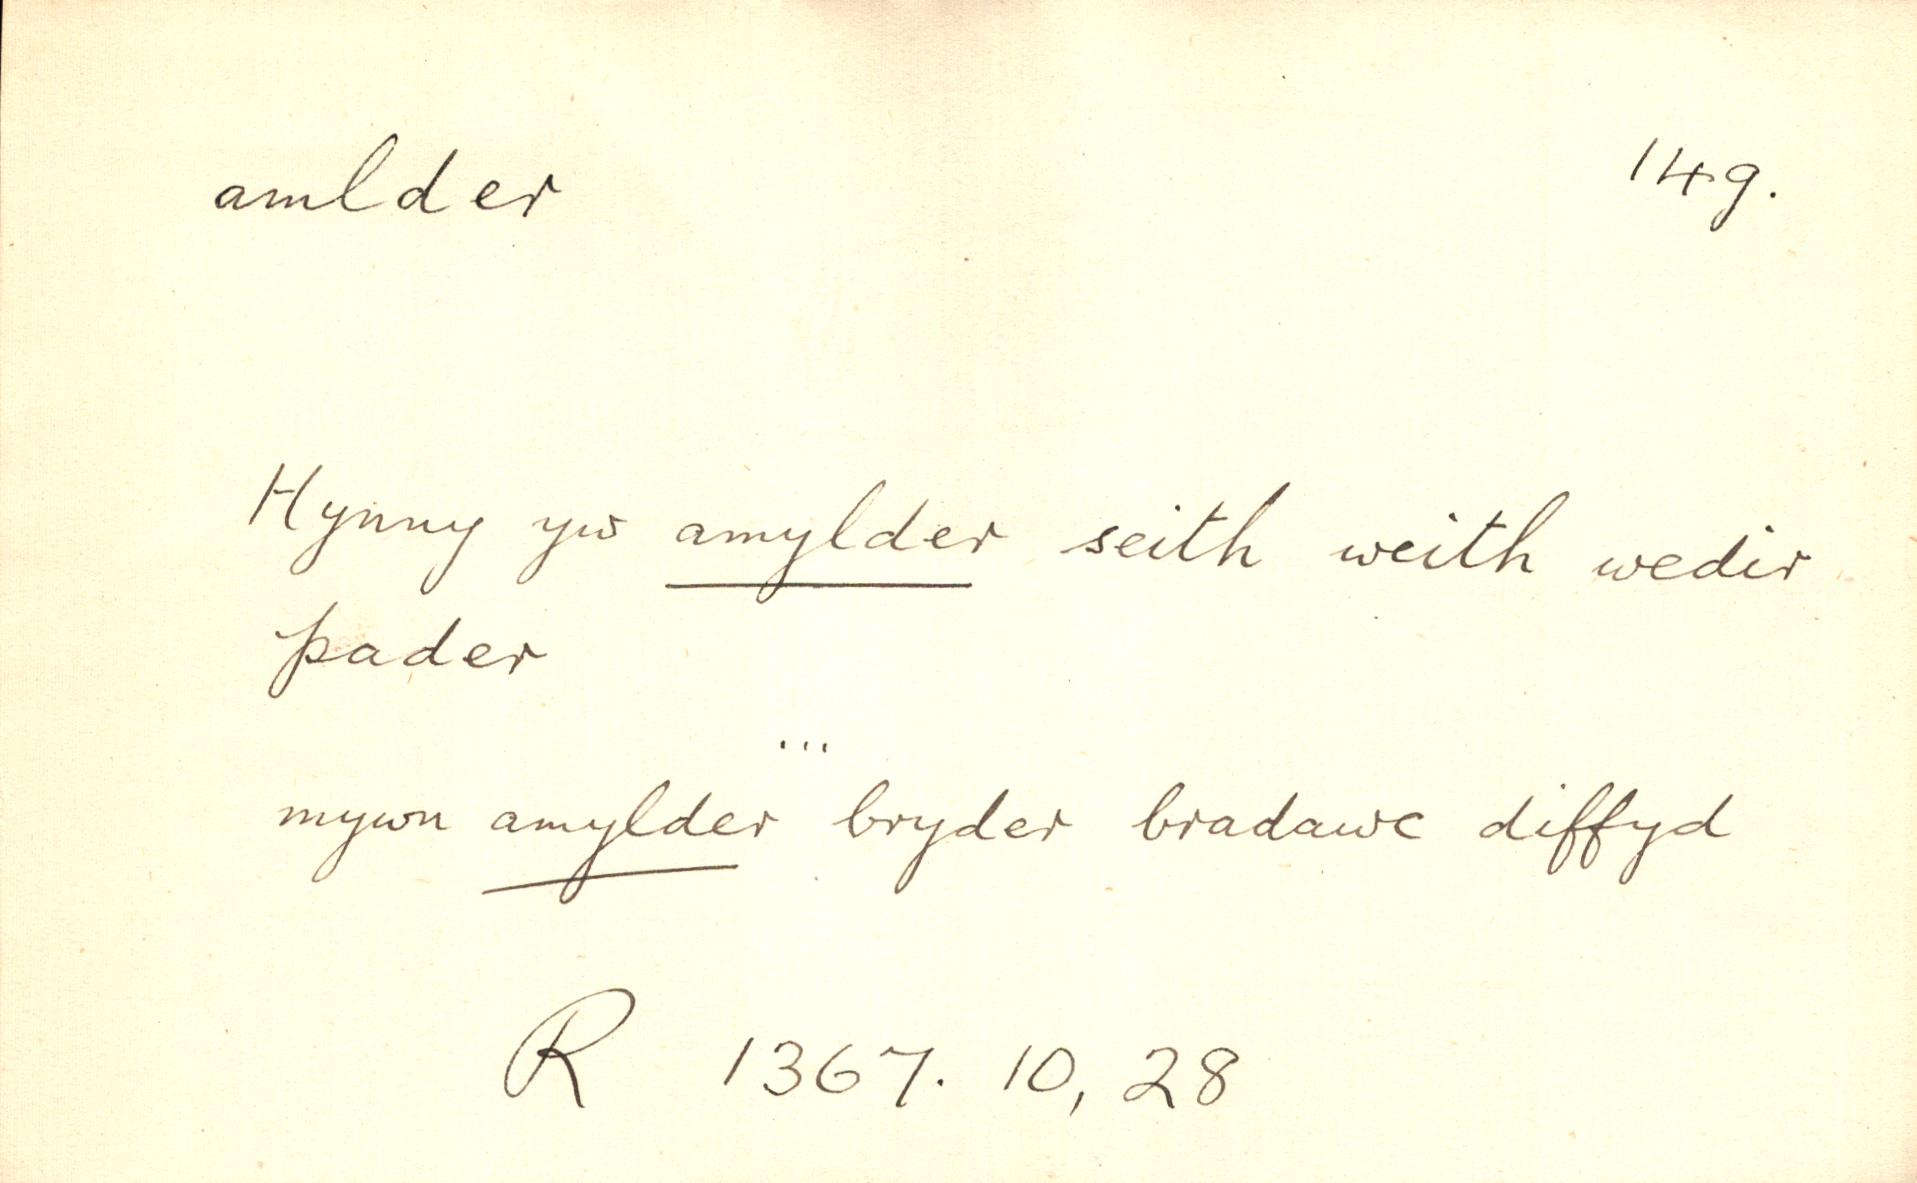 amlder 14g.
Hynny yw amylder seith weith wedir
pader
...
mywn amylder bryder bradawc diffyd
R 1367. 10, 28